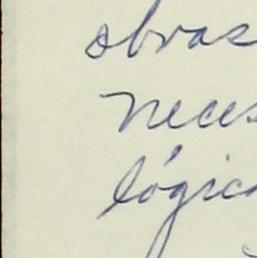 obras
neces
lógica